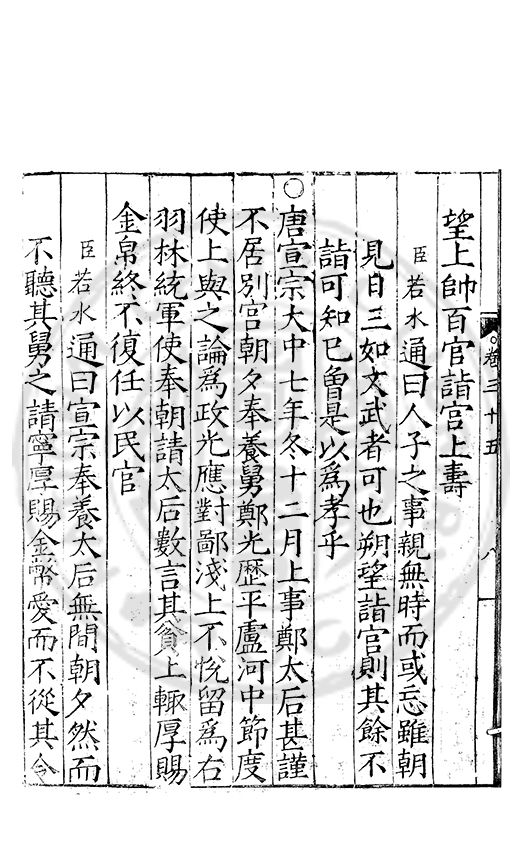 望上帥百官詣宫上壽
臣若水通曰人子之事親無時而或忘雖朝
見日三如文武者可也朔望詣宫則其餘不
詣可知已曾是以為孝乎
○唐宣宗大中七年冬十二月上事鄭太后甚謹
不居别宫朝夕奉養舅鄭光歷平盧河中節度
使上與之論為政光應對鄙淺上不悅留為右
羽林統軍使奉朝請太后數言其貧上輒厚賜
金帛終不復任以民官
臣若水通曰宣宗奉養太后無間朝夕然而
不聽其舅之請寧厚賜金幣愛而不從其令
卷三十五
八